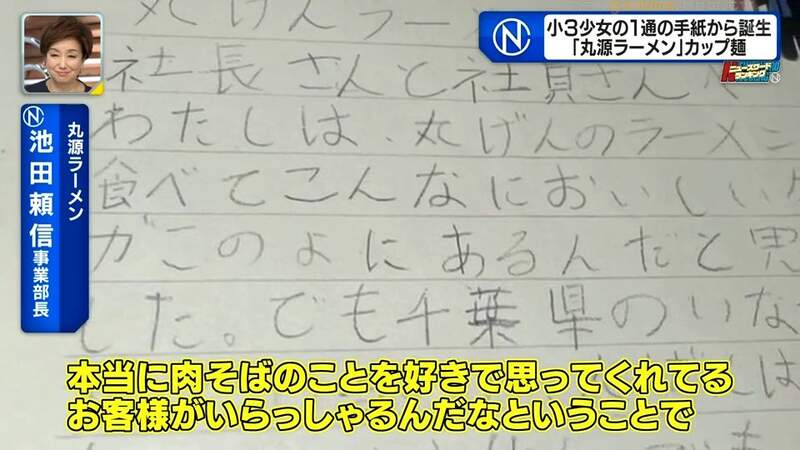 小3少女の1通の手紙から誕生
「丸源ラーメン」カップ麺
ニュースワード
ランキング
N
丸げんラーメン
社長さんと社員さん
わたしは、丸げんのラーメン
食べてこんなにおいしい
がこのよにあるんだと思
した。でも千葉県のいな
は
丸源ラーメン
池田頼信 事業部長
本当に肉そばのことを好きで思ってくれてる
お客様がいらっしゃるんだなということで